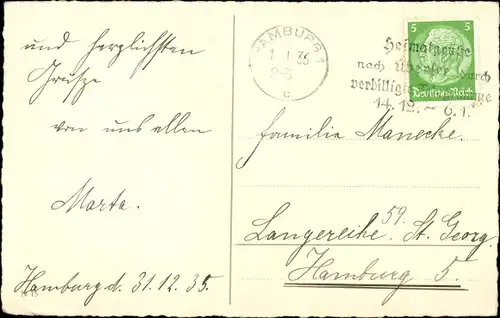 und herzlichsten
Grüsze
von uns allen
Marta.
Hamburg d. 31.12.35.
HAMBURG 1
1.1.36
c
5 5
Deutsches Reich
Heimatgrüße
nach Übersee durch
verbilligte
14.12. – 6.1.
Familie Manecke.
Langereihe 59. St. Georg
Hamburg 5.